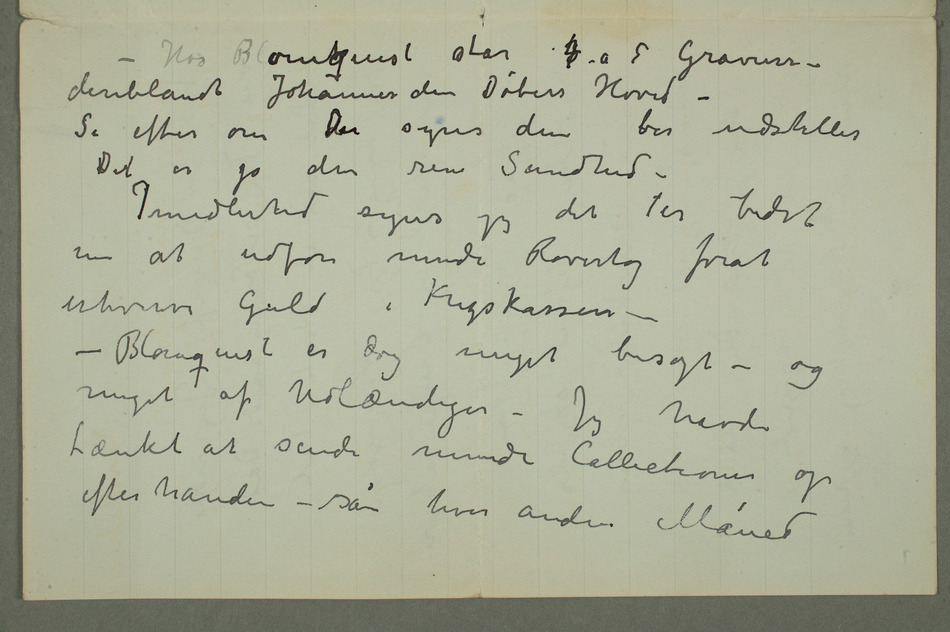 – Hos Blomquist står 4 a 5 Gravurer –
deriblandt Johannes den Døbers Hoved –
Se efter om Du synes den bør udstilles
Det er jo den rene Sandhed –
Imidlertid synes jeg det er bedst
nu at udføre mindre Rovertog forat
erhverve Guld i Krigskassen –
– Blomquist er dog meget besøgt – og
meget af Udlændiger – Jeg havde
tænkt at sende mindre Collectioner op
efterhånden – så hver anden Måned